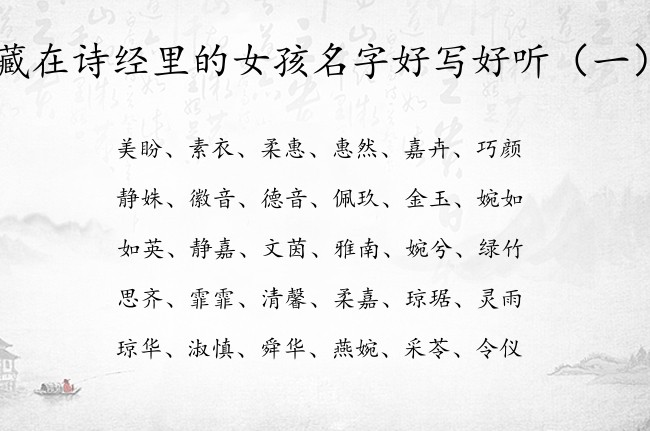 藏在诗经里的女孩名字好写好听（一）
美盼、素衣、柔惠、惠然、嘉卉、巧颜
静姝、徽音、德音、佩玖、金玉、婉如
如英、静嘉、文茵、雅南、婉兮、绿竹
思齐、霏霏、清馨、柔嘉、琼琚、灵雨
琼华、淑慎、舜华、燕婉、采苓、令仪